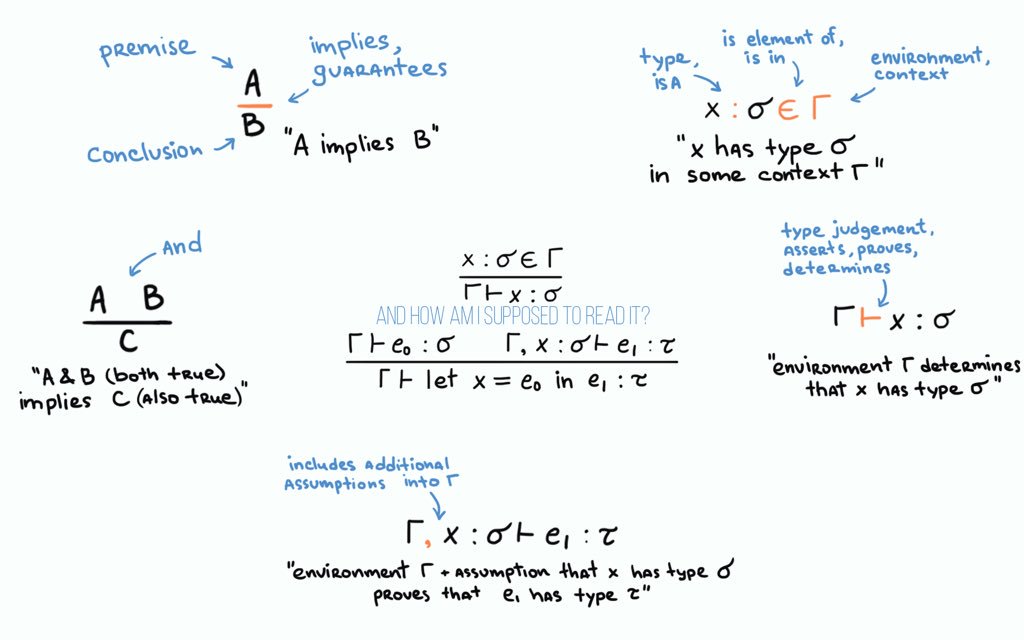 premise
implies,
guarantees
A
B
conclusion
"A implies B"
type,
is a
is element of,
is in
environment,
context
x : σ ∈ Γ
"x has type σ
in some context Γ"
and
A B
C
"A & B (both true)
implies C (also true)"
x : σ ∈ Γ
Γ ⊢ x : σ
AND HOW AM I SUPPOSED TO READ IT?
Γ ⊢ e₀ : σ Γ, x : σ ⊢ e₁ : τ
Γ ⊢ let x = e₀ in e₁ : τ
type judgement,
asserts, proves,
determines
Γ ⊢ x : σ
"environment Γ determines
that x has type σ"
includes additional
assumptions into Γ
Γ, x : σ ⊢ e₁ : τ
"environment Γ + assumption that x has type σ
proves that e₁ has type τ"